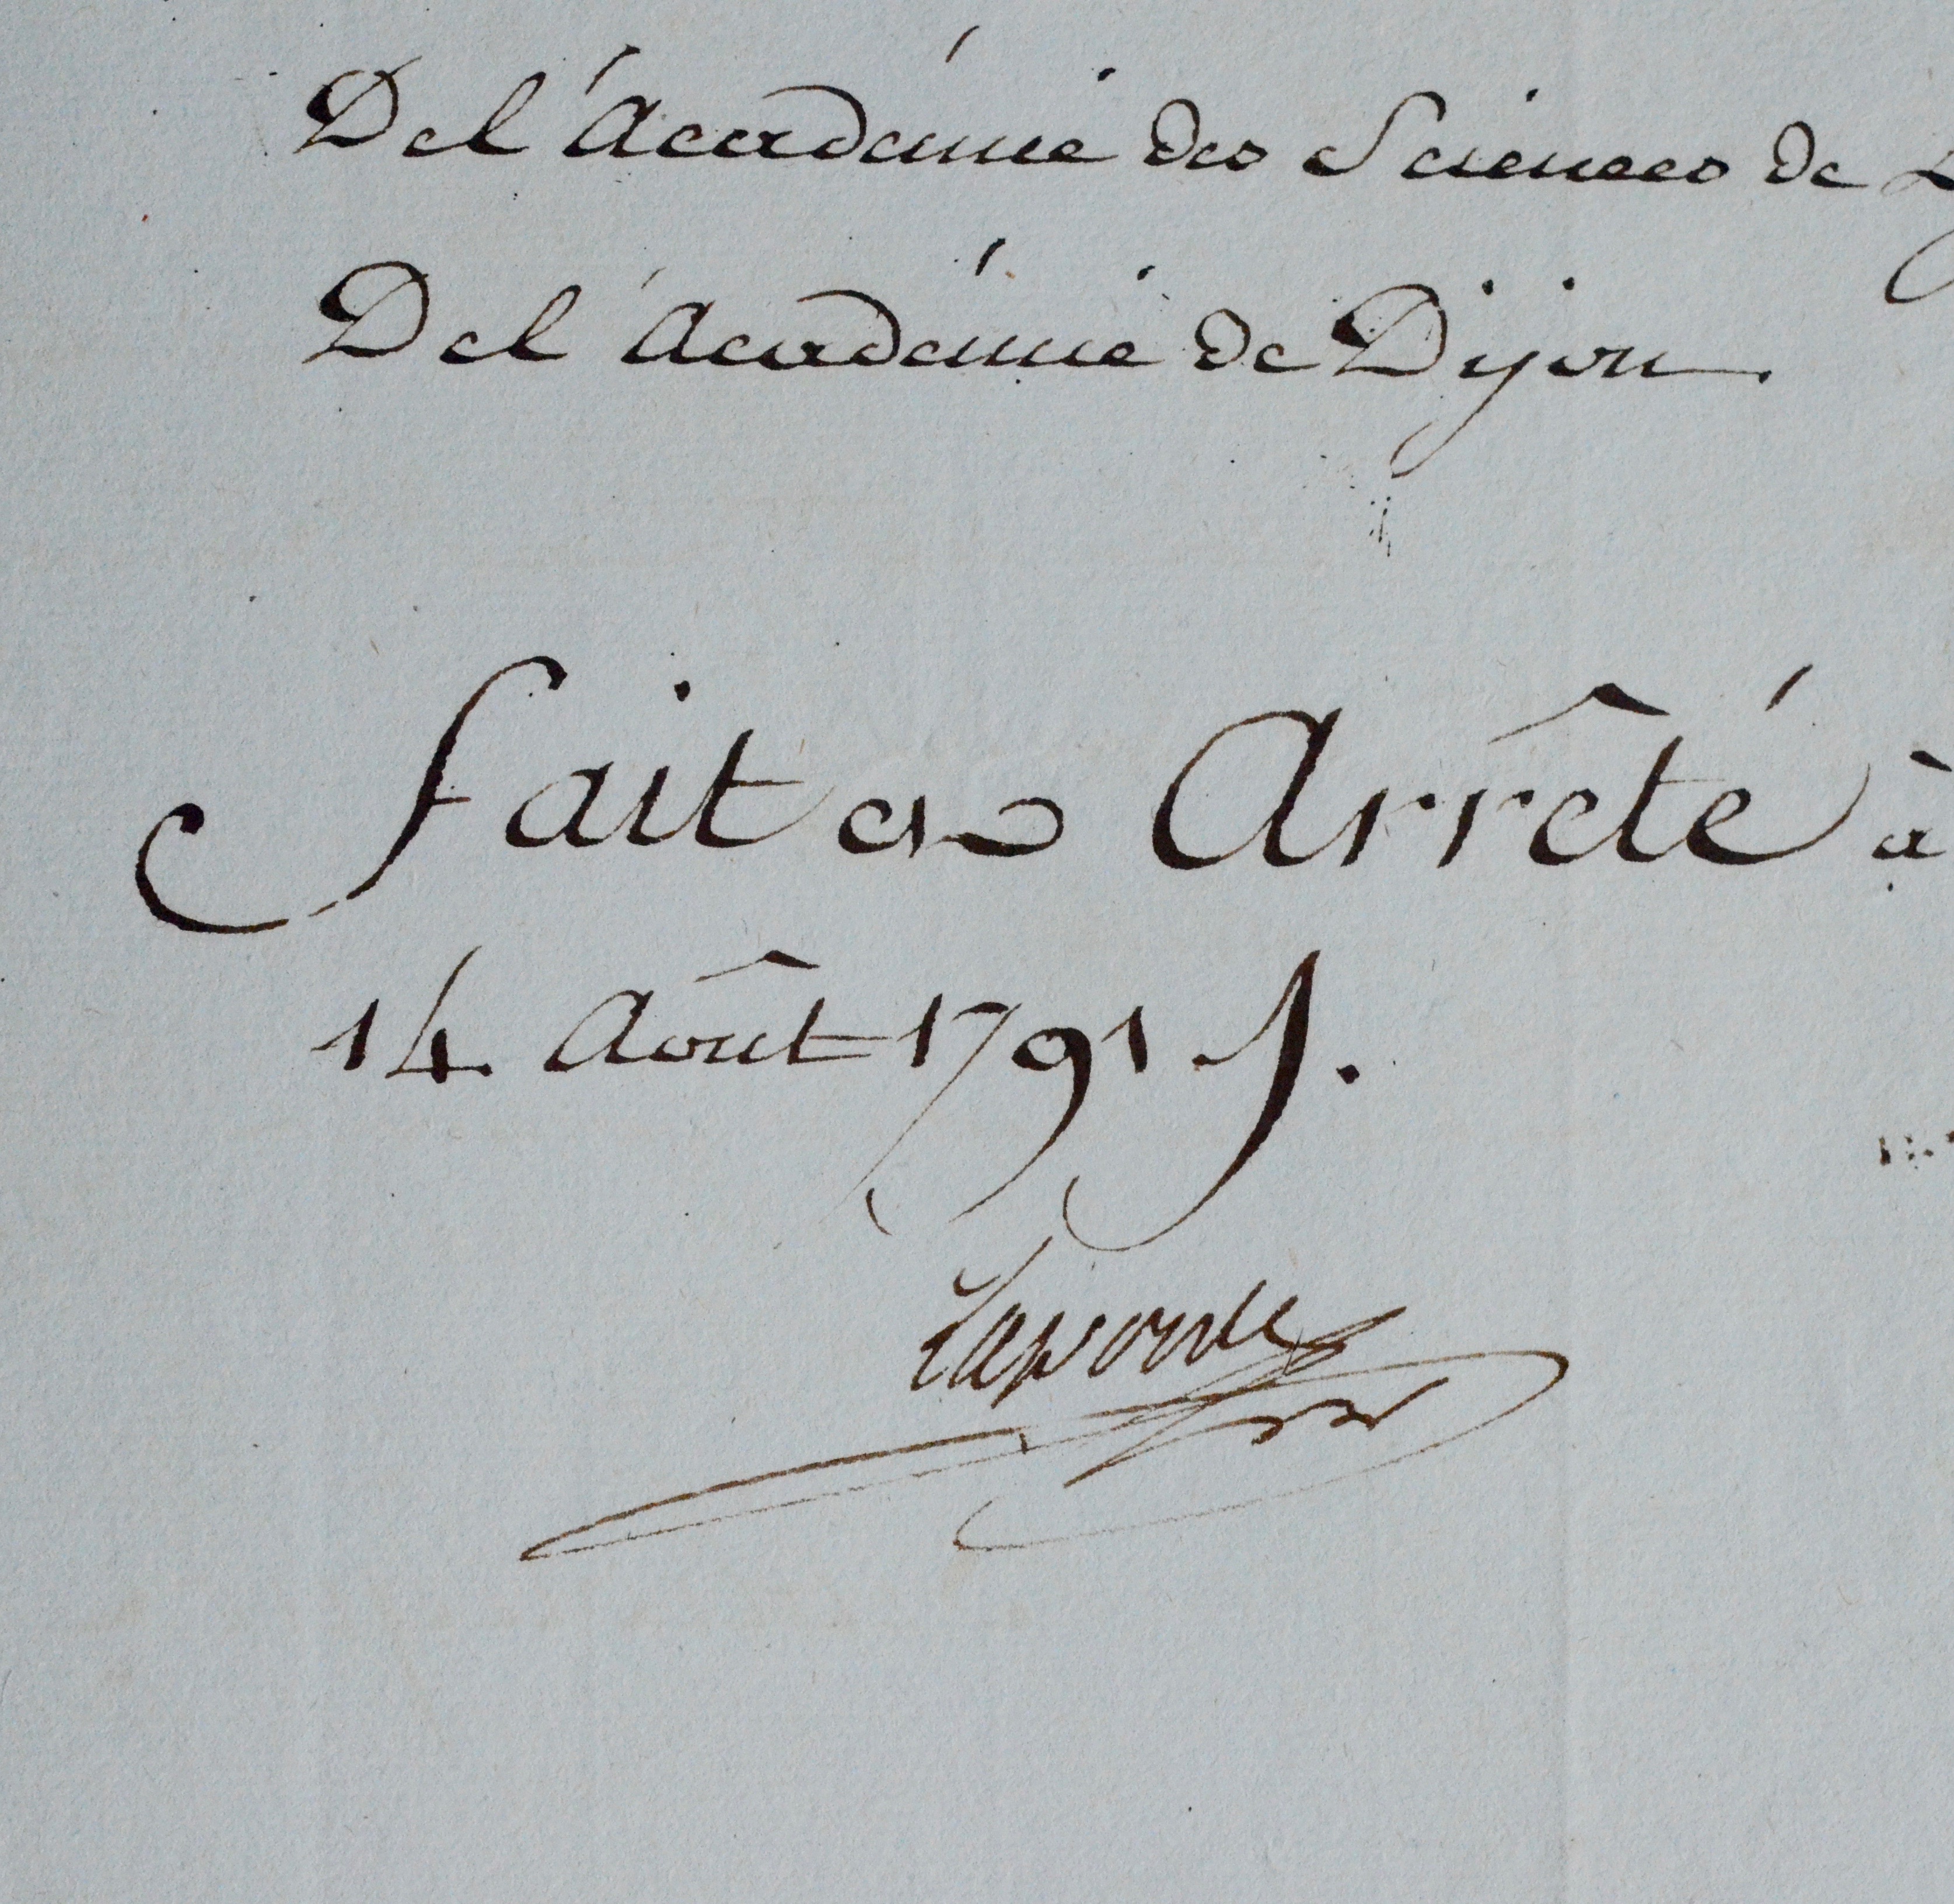 De l'Académie des Sciences de
De l'Académie de Dijon
fait et Arrêté à
14 Août 1791.
Laporte